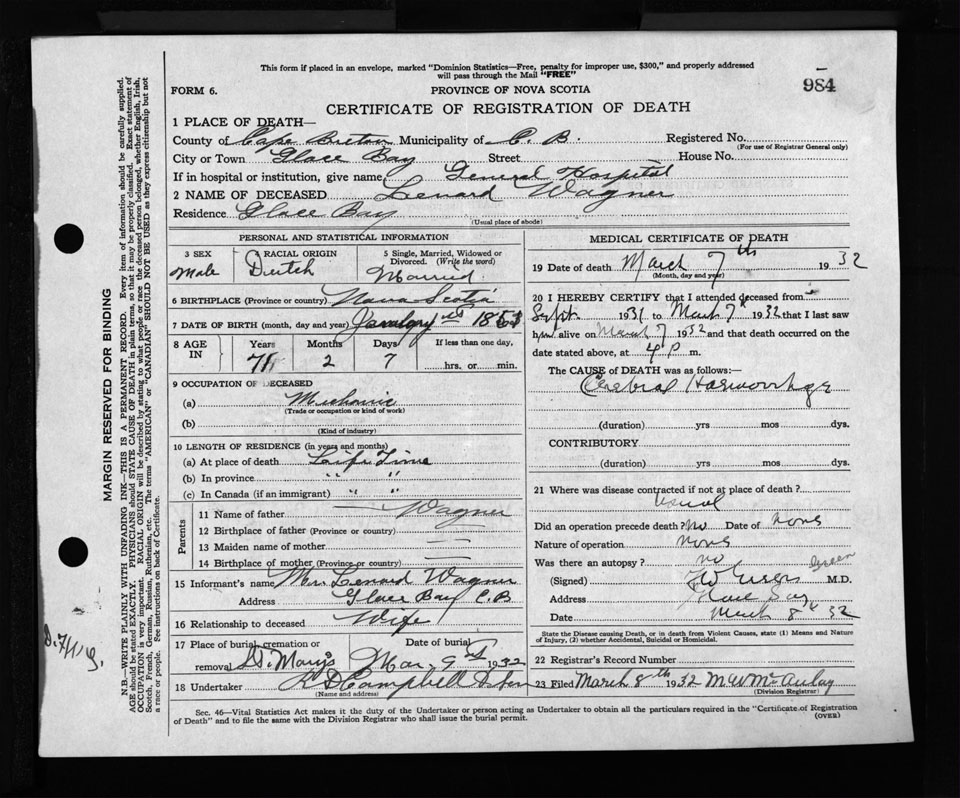 984
This form if placed in an envelope, marked "Dominion Statistics—Free, penalty for improper use, $300," and properly addressed
will pass through the Mail "FREE"
FORM 6.
PROVINCE OF NOVA SCOTIA
CERTIFICATE OF REGISTRATION OF DEATH
1 PLACE OF DEATH—
County of Cape Breton Municipality of C. B. Registered No.
(For use of Registrar General only)
City or Town Glace Bay Street House No.
If in hospital or institution, give name General Hospital
2 NAME OF DECEASED Lenard Wagner
Residence Glace Bay
(Usual place of abode)
PERSONAL AND STATISTICAL INFORMATION
3 SEX
Male
4 RACIAL ORIGIN
Dutch
5 Single, Married, Widowed or
Divorced. (Write the word)
Married
6 BIRTHPLACE (Province or country) Nova Scotia
7 DATE OF BIRTH (month, day and year) January
8 AGE IN
Years Months Days If less than one day,
2 7 hrs. or min.
9 OCCUPATION OF DECEASED
(a) Mechanic
(Trade or occupation or kind of work)
(b)
(Kind of industry)
10 LENGTH OF RESIDENCE (in years and months)
(a) At place of death Life Time
(b) In province " "
(c) In Canada (if an immigrant) " "
Parents
11 Name of father Wagner
12 Birthplace of father (Province or country)
13 Maiden name of mother
14 Birthplace of mother (Province or country)
15 Informant's name Mrs Lenard Wagner
Address Glace Bay C.B
16 Relationship to deceased Wife
17 Place of burial, cremation or
removal St. Mary's
Date of burial
Mar. 9 1932
18 Undertaker Campbell
(Name and address)
MEDICAL CERTIFICATE OF DEATH
19 Date of death March 7th 1932
(Month, day and year)
20 I HEREBY CERTIFY that I attended deceased from
Sept. 1931 to March 7 1932 that I last saw
him alive on March 7 1932 and that death occurred on
date stated above, at 4 p m.
The CAUSE of DEATH was as follows:—
Cerebral Haemorrhage
(duration) yrs mos dys.
CONTRIBUTORY
(duration) yrs mos dys.
21 Where was disease contracted if not at place of death?
Did an operation precede death? no Date of none
Nature of operation none
Was there an autopsy? no
(Signed) M.D.
Address Glace Bay
Date March 8 32
State the Disease causing Death, or in death from Violent Causes, state (1) Means and Nature
of Injury, (2) whether Accidental, Suicidal or Homicidal.
22 Registrar's Record Number
23 Filed March 8th 1932 M W McAulay
(Division Registrar)
Sec. 46—Vital Statistics Act makes it the duty of the Undertaker or person acting as Undertaker to obtain all the particulars required in the "Certificate of Registration
of Death" and to file the same with the Division Registrar who shall issue the burial permit.
(OVER)
MARGIN RESERVED FOR BINDING
N.B.—WRITE PLAINLY WITH UNFADING INK—THIS IS A PERMANENT RECORD. Every item of information should be carefully supplied.
AGE should be stated EXACTLY. PHYSICIANS should STATE CAUSE OF DEATH in plain terms, so that it may be properly classified. Exact statement of
OCCUPATION is very important. RACIAL ORIGIN will be described by stating to what people or race the deceased person belonged, whether English, Irish,
Scotch, French, German, Russian, Ruthenian, etc. The terms "AMERICAN" or "CANADIAN" SHOULD NOT BE USED as they express citizenship but not
a race or people. See instructions on back of Certificate.